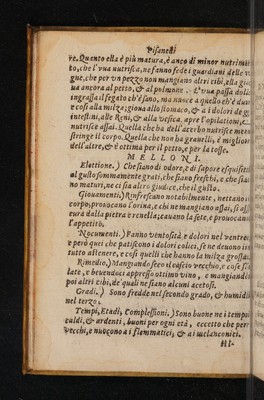 Pisanelli
re. Quento ella è più matura, è anco di minor nutrimẽ
to, che l'vua nutrisca, ne fanno fede i guardiani delle vi
gne, che per vn pezzo non mangiano altri cibi, ella gio
ua ancora al petto, & al polmone. L'vua passa dolce
ingrassa il fegato ch'esano, ma nuoce a quello ch'è duro
e così alla milza; gioua allo stomaco, & a i dolori de gl'
intestini, alle Reni, & alla vesica, apre l'opilationi, e
nutrisce assai. Quella che ha dell'acerbo nutrisce meno,
stringe il corpo. Quella che non hà granelli, è migliore
dell'altre, & è ottima per il petto, e per la tosse.
MELLONI.
Elettione.) Che siano di odore, e di sapore esquisiti
al gusto sommamente grati, che siano freschi, e che sia-
no maturi, ne ci sia altro giudice, che il gusto.
Giouamenti.) Rinfrescano notabilmente, nettano il
corpo, prouocano l'orina, e chi ne mangiano assai, si assi
cura dalla pietra e renella; cauano la sete, e prouocano
l'appetito.
Nocumenti.) Fanno ventosità e dolori nel ventre;
e però quei che patiscono i dolori colici, se ne deuono in
tutto astenere, e così quelli che hanno la milza grossa.
Rimedio.) Mangiando seco il cascio vecchio, e cose sa
late, e beuendoci appresso ottimo vino, e mangiando
poi altri cibi, de' quali ne siano alcuni acetosi.
Gradi.) Sono fredde nel secondo grado, & humidi
nel terzo.
Tempi, Etadi, Complessioni.) Sono buone ne i tempi
caldi, & ardenti, buoni per ogni età, eccetto che per i
vecchi, e nuocono a i flemmatici, & a i melanconici.